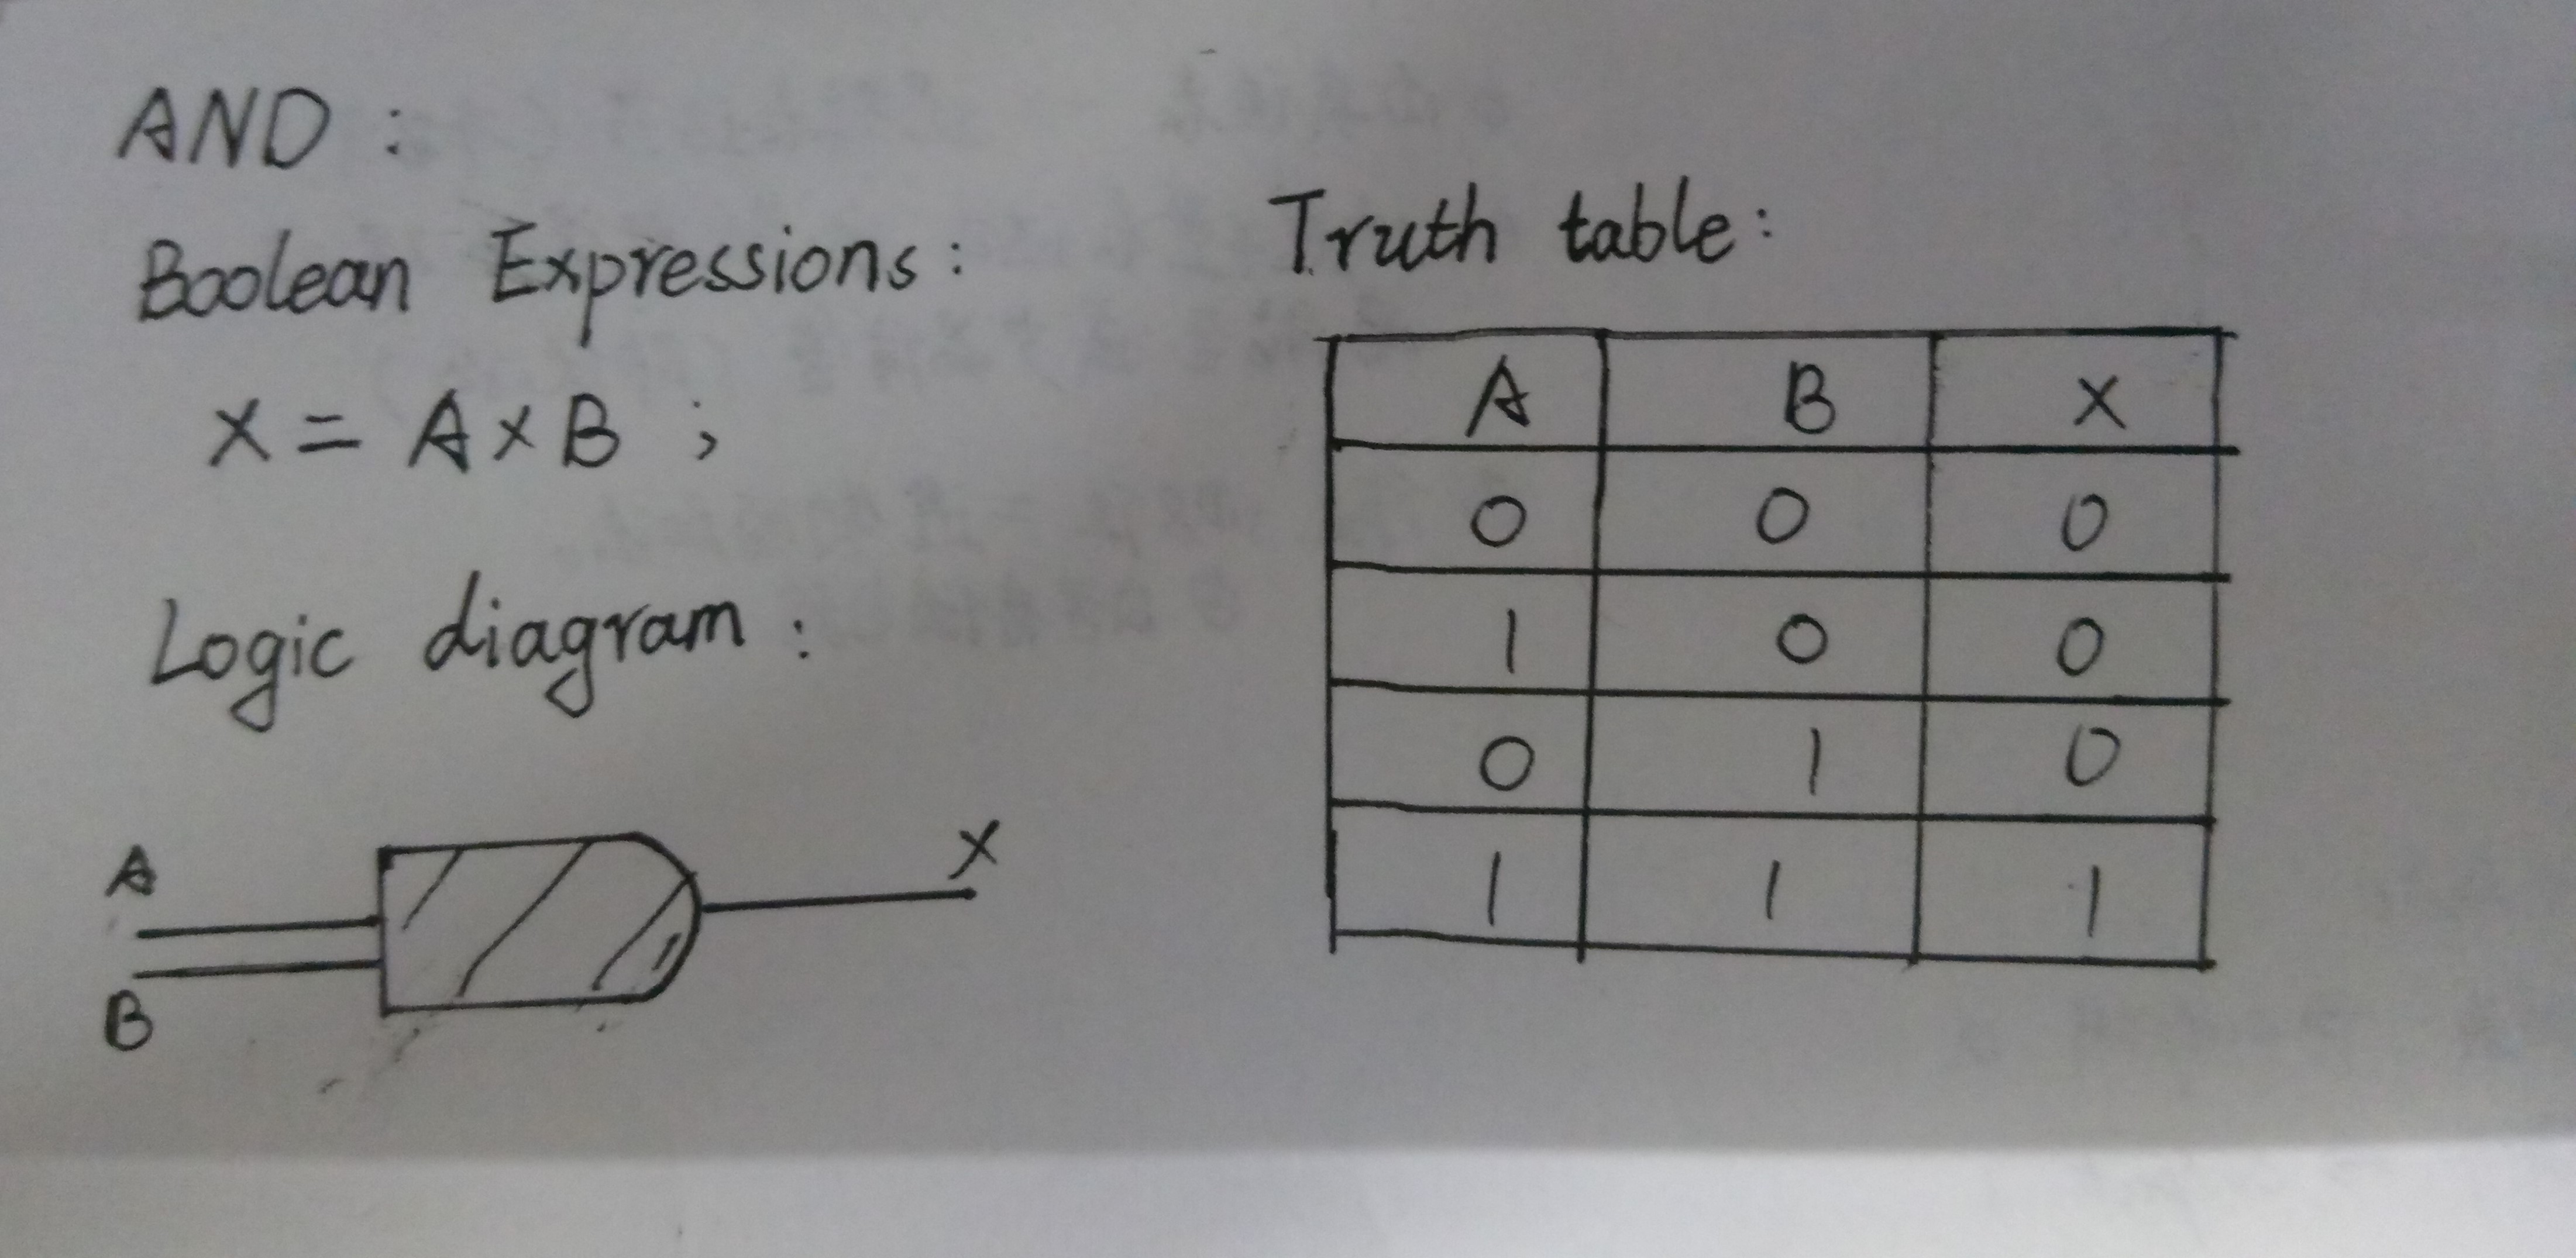 AND :
Boolean Expressions :
X = A × B ;
Logic diagram :
A
B
X
Truth table :
A B X
0 0 0
1 0 0
0 1 0
1 1 1